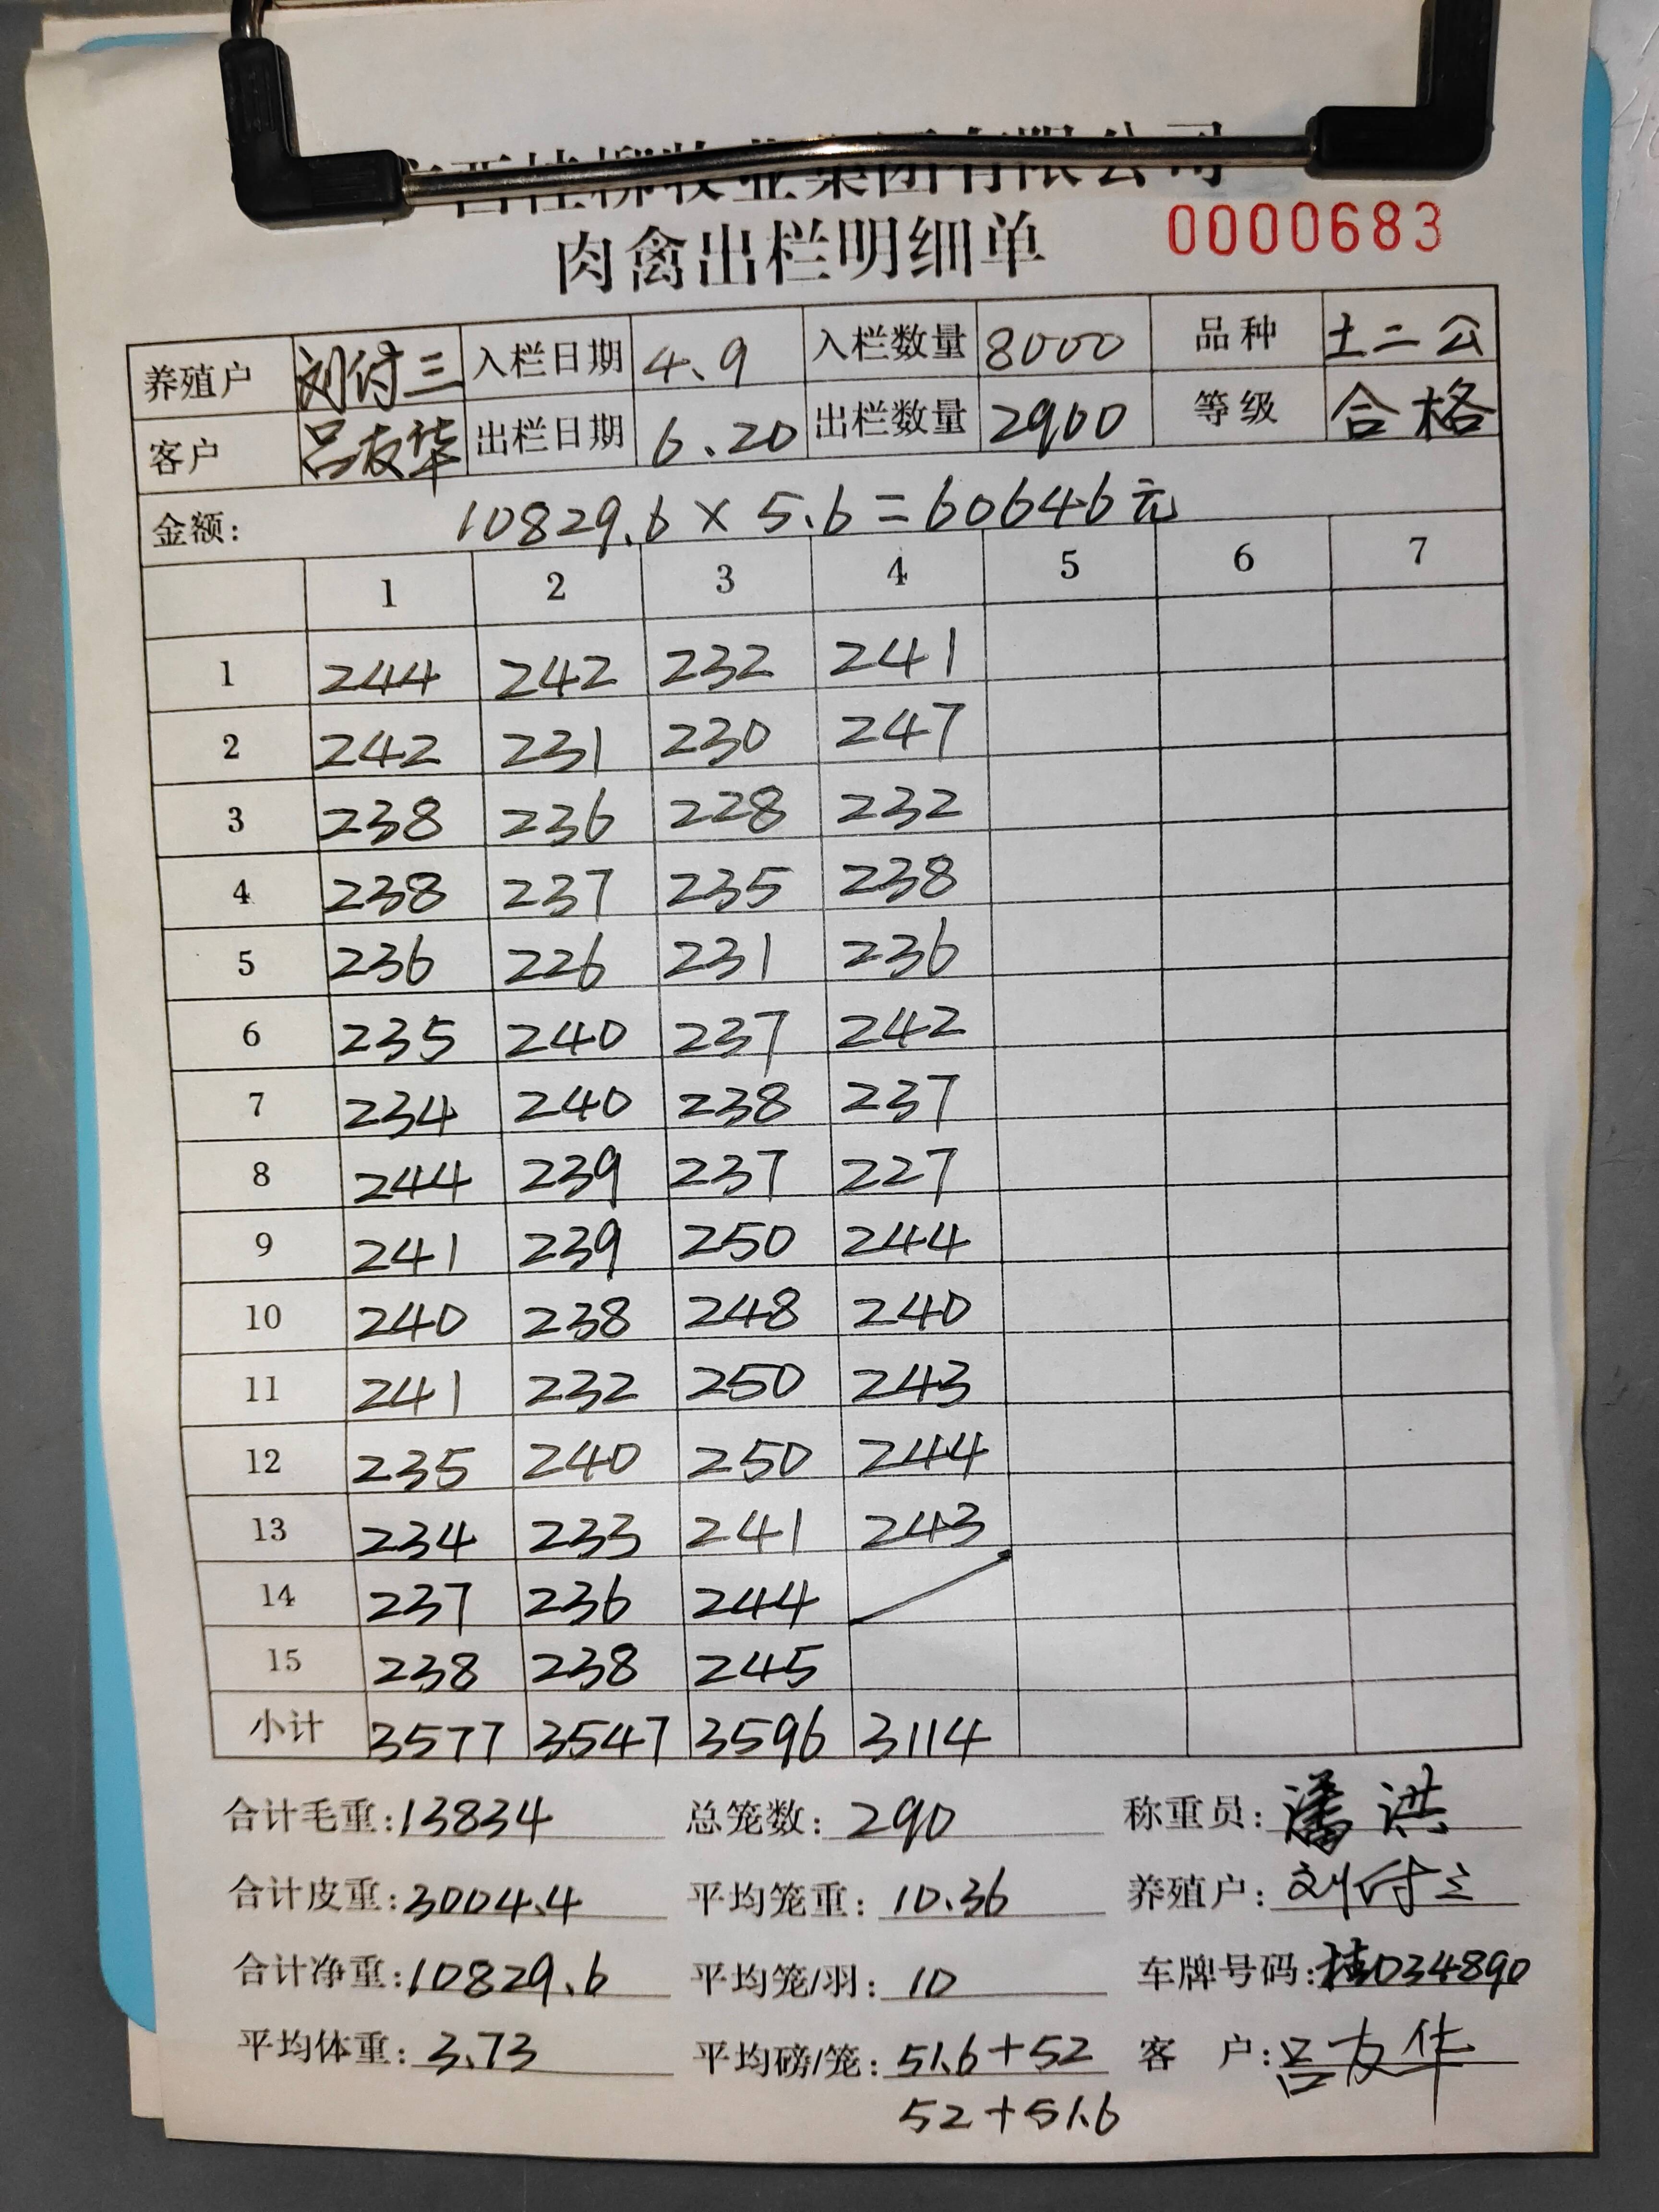 集团有限公司
肉禽出栏明细单 0000683
养殖户 刘付三 入栏日期 4.9 入栏数量 8000 品种 土二公
客户 吕友华 出栏日期 6.20 出栏数量 2900 等级 合格
金额: 10829.6×5.6=60646元
1 2 3 4 5 6 7
1 244 242 232 241
2 242 231 230 247
3 238 236 228 232
4 238 237 235 238
5 236 226 231 236
6 235 240 237 242
7 234 240 238 237
8 244 239 237 227
9 241 239 250 244
10 240 238 248 240
11 241 232 250 243
12 235 240 250 244
13 234 233 241 243
14 237 236 244
15 238 238 245
小计 3577 3547 3596 3114
合计毛重:13834 总笼数:290 称重员:潘洪
合计皮重:3004.4 平均笼重:10.36 养殖户:刘付三
合计净重:10829.6 平均笼/羽:10 车牌号码:桂034890
平均体重:3.73 平均磅/笼:51.6+52 客 户:吕友华
52+51.6